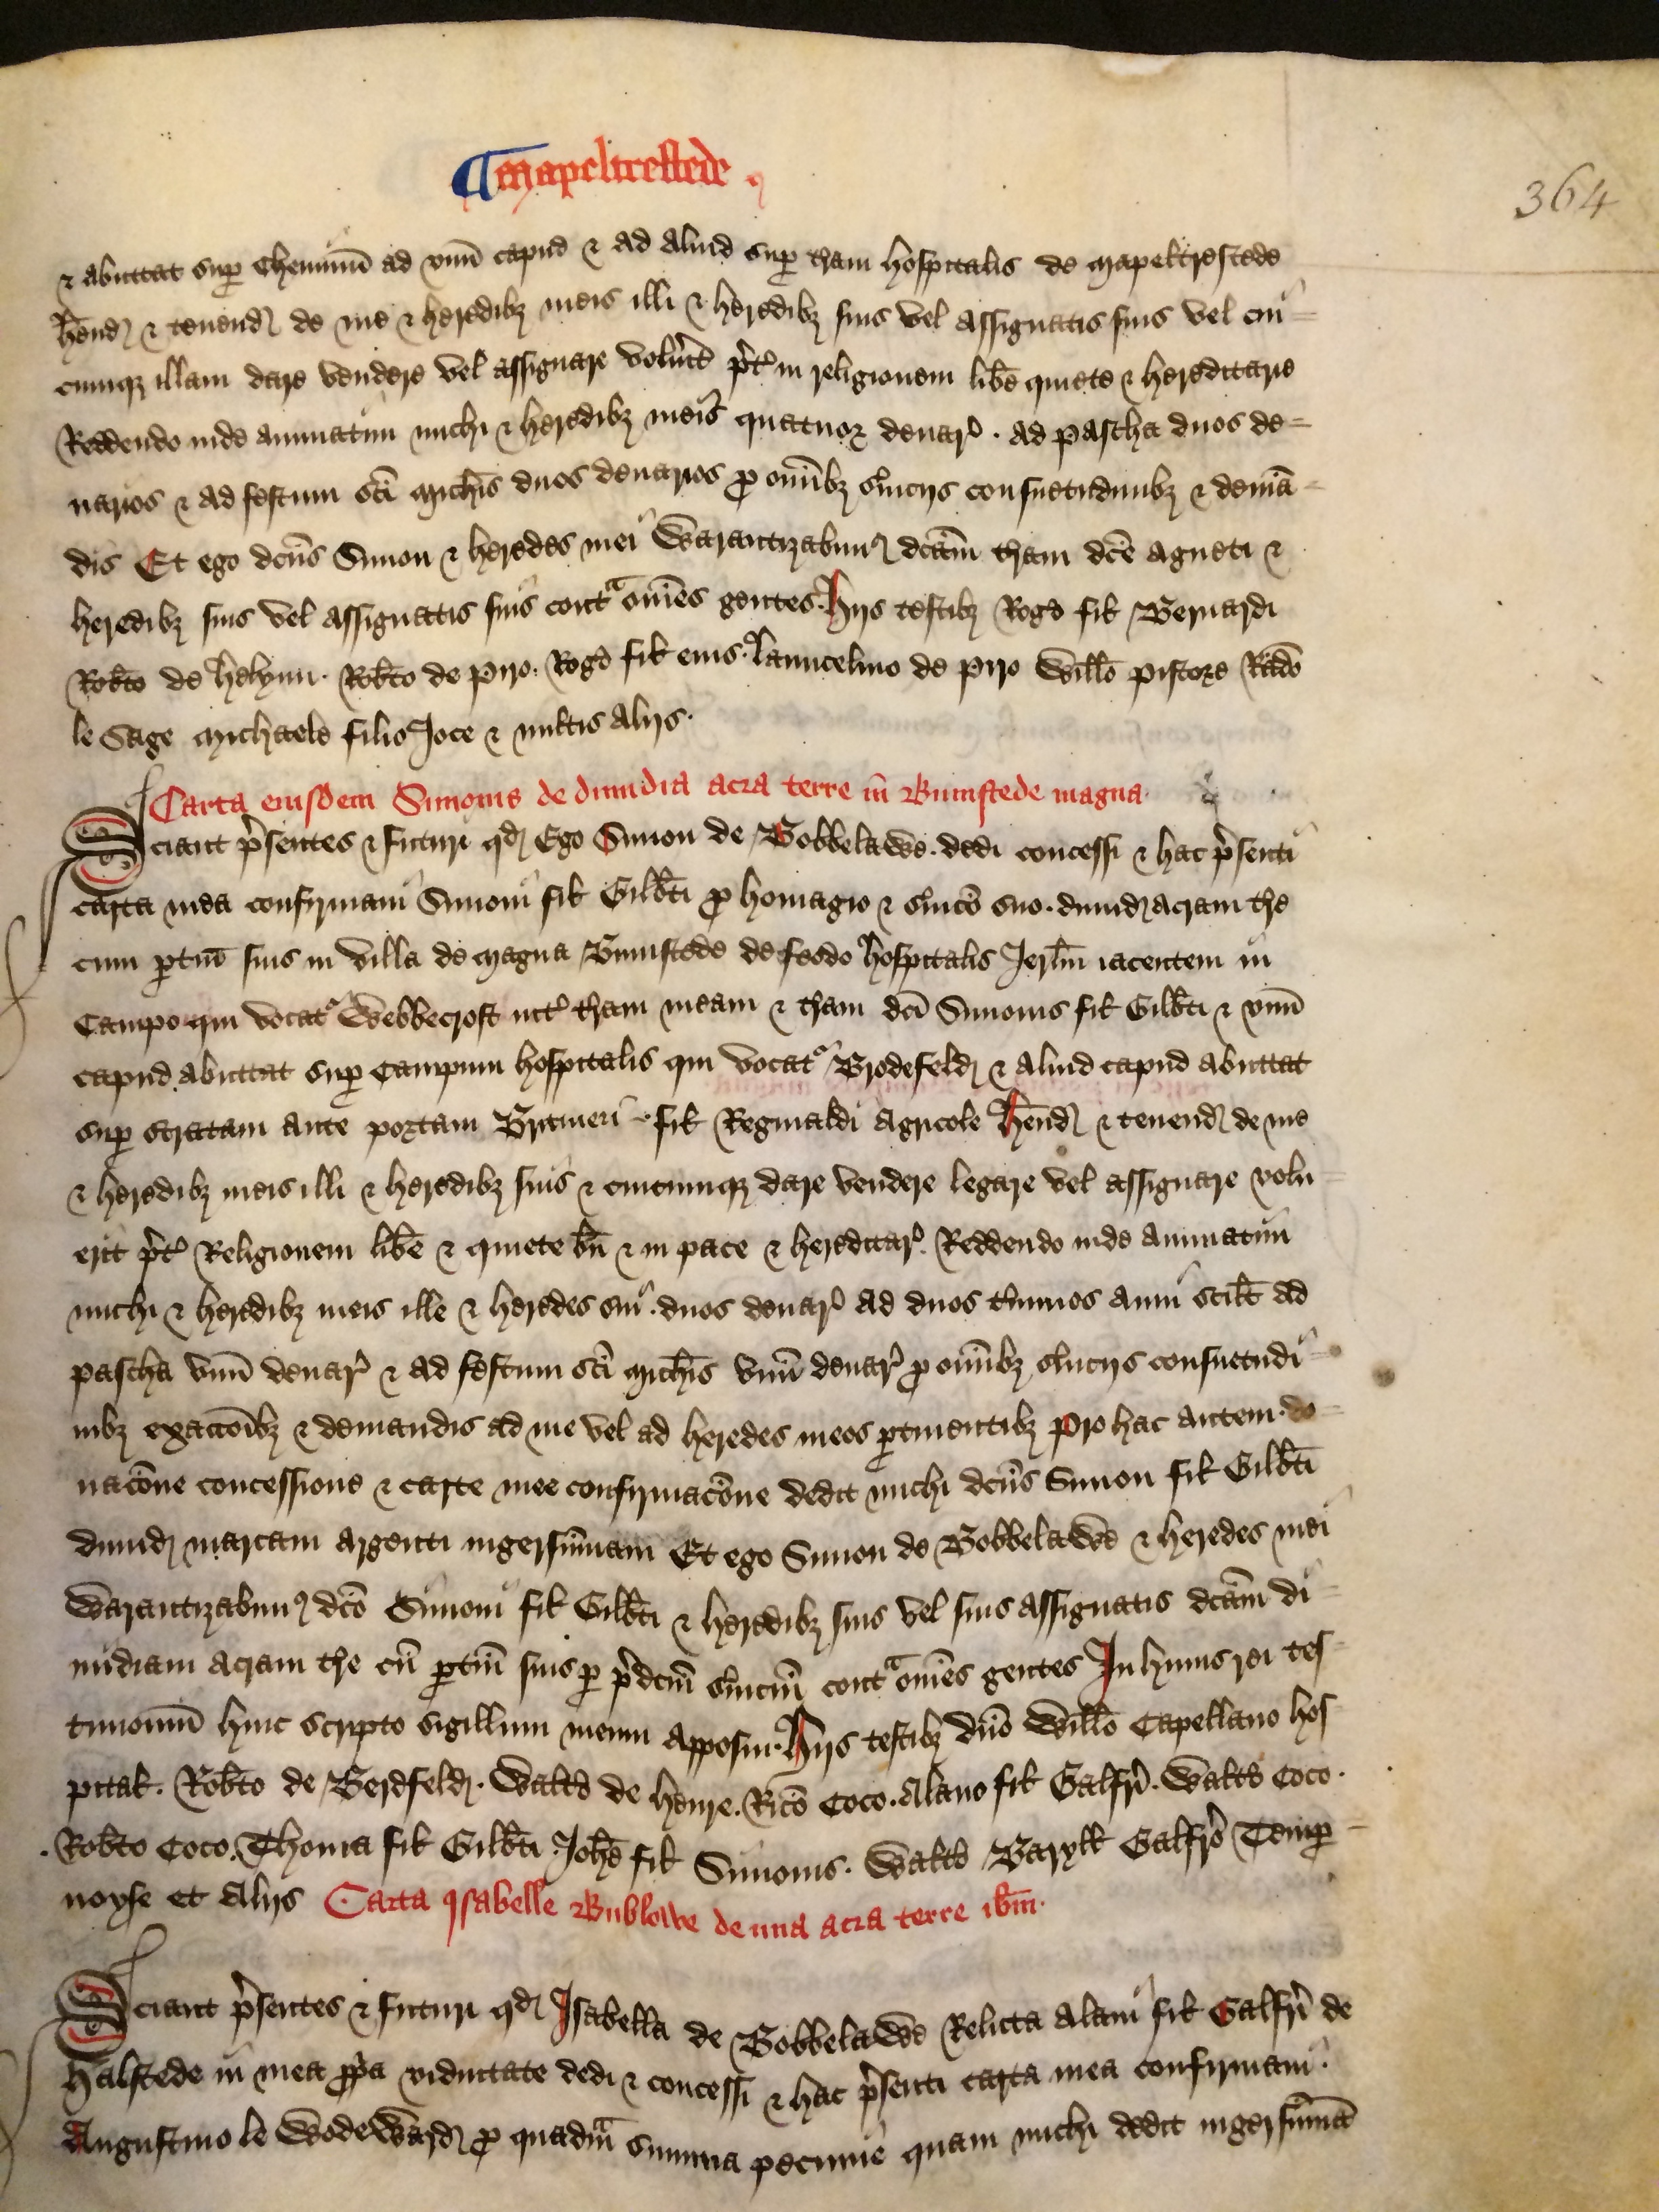 ¶ Mapeltrestede
364
⁊ abuttat sup Cheminū ad vnū capud ⁊ ad aliud sup t'ram hospitalis de Mapeltrestede
hēnd ⁊ tenend de me ⁊ heredibȝ meis illi ⁊ heredibȝ suis vel assignatis suis vel cui
cumqȝ illam dare vendere vel assignare voluit p't in religionem libe quiete ⁊ hereditarie
Reddendo inde annuatim michi ⁊ heredibȝ meis quatuor denar' . ad pascha duos de
narios ⁊ ad festum sci Michis duos denarios p omibȝ s'uicijs consuetudinibȝ ⁊ demā
dis Et ego dcus Simon ⁊ heredes mei Warantizabim' dcam t'ram dce Agneti ⁊
heredibȝ suis vel assignatis suis cont'a omes gentes. Hijs testibȝ Rog'o fil Bernardi
Robto de Helyun. Robto de piro. Rog'o fil eius. launcelino de piro Willo pistore Rado
le Sage Michaele filio Joce ⁊ multis alijs.
Carta eiusdem Simonis de dimidia acra terre in Bumstede magna
Sciant p'sentes ⁊ futuri qd Ego Simon de Bobbelawe. dedi concessi ⁊ hac p'senti
carta mea confirmaui Simoni fil Gilbti p homagio ⁊ s'uico suo. dimid acram t're
cum ptin suis in villa de Magna Bumstede de feodo hospitalis Jerlm iacentem in
Campo qui vocat' Webbecroft int' t'ram meam ⁊ t'ram dci Simonis fil Gilbti ⁊ vnū
capud abuttat sup Campum hospitalis qui vocat' Brodefeld ⁊ aliud capud abuttat
sup stratam ante portam Britmeri fil Reginaldi Agricole hēnd ⁊ tenend de me
⁊ heredibȝ meis illi ⁊ heredibȝ suis ⁊ cuicumqȝ dare vendere legare vel assignare volu
erit p't Religionem libe ⁊ quiete bn ⁊ in pace ⁊ hereditar' Reddendo inde annuatim
michi ⁊ heredibȝ meis ille ⁊ heredes sui. duos denar' ad duos t'minos anni scilt ad
pascha vnū denar' ⁊ ad festum sci Michis vnū denar' p omibȝ s'uicijs consuetudi
nibȝ exaccoibȝ ⁊ demandis ad me vel ad heredes meos ptinentibȝ Pro hac autem do
nacone concessione ⁊ carte mee confirmacone dedit michi dcus Simon fil Gilbti
dimid marcam argenti ingersumam Et ego Simon de Bobbelawe ⁊ heredes mei
Warantizabim' dco Simoni fil Gilbti ⁊ heredibȝ suis vel suis assignatis dcam di
midiam acram t're cū ptin suis p p'dcm s'uiciū cont'a omes gentes In huius rei tes
timoniū huic scripto sigillum meum apposui. Hijs testibȝ dno Willo Capellano hos
pital. Robto de Berdfeld. Walto de henre. Rico Coco. Alano fil Galfri. Walto Coco.
Robto Coco. Thoma fil Gilbti Johe fil Simonis. Walto Baryll Galfro Temp
noyse et Alijs Carta Isabelle Bublowe de una acra terre ibm.
Sciant p'sentes ⁊ futuri qd Isabella de Bobbelawe Relicta Alani fil Galfri de
Halstede in mea ppa viduitate dedi ⁊ concessi ⁊ hac p'senti carta mea confirmaui.
Augustino le Wodeward p quadm summa pecunie quam michi dedit ingersumā